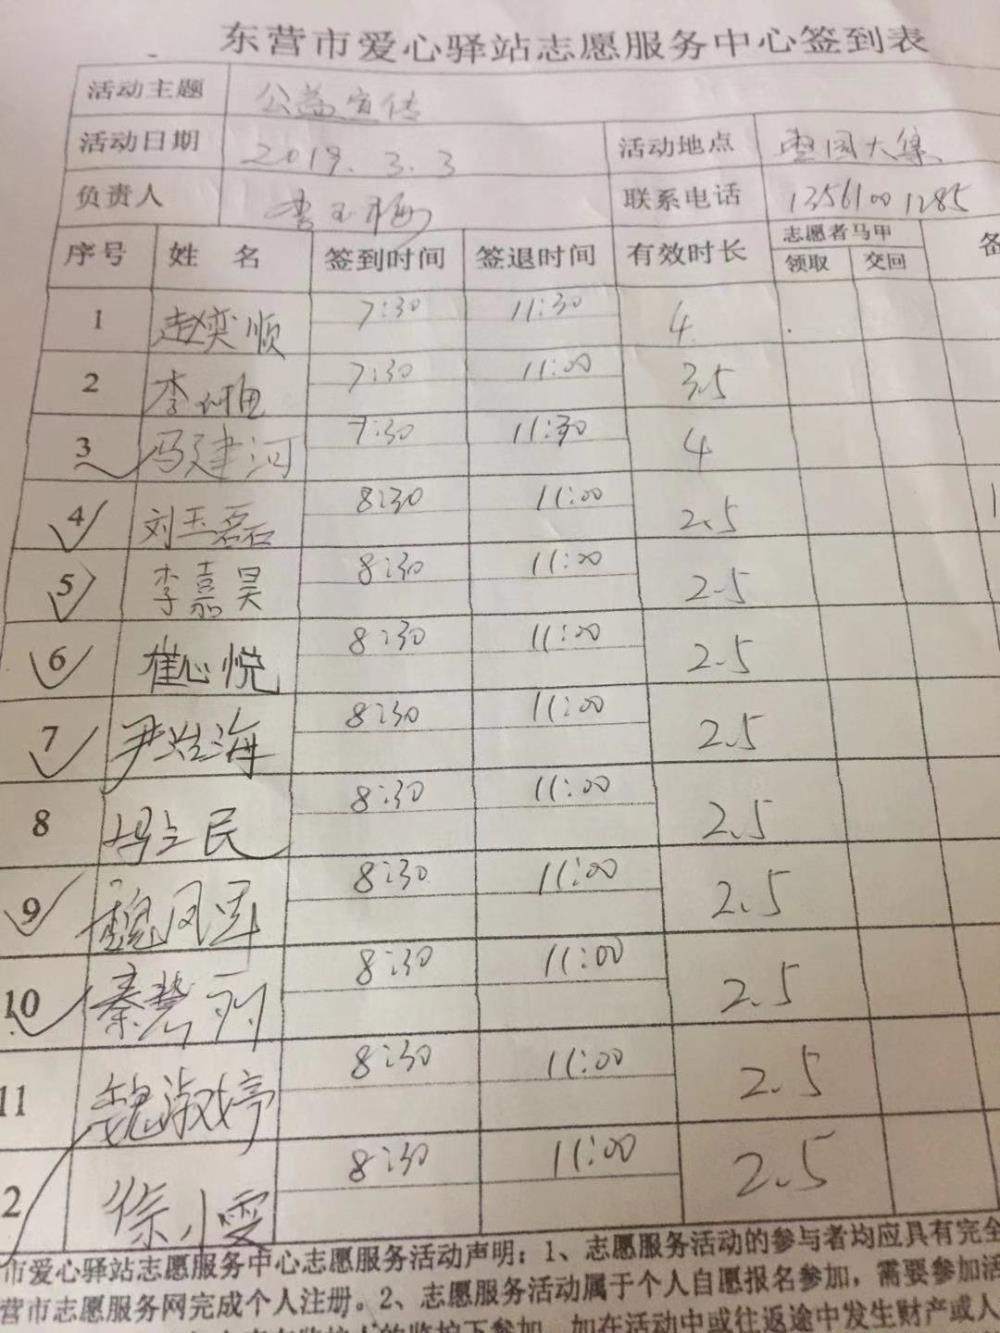 东营市爱心驿站志愿服务中心签到表
活动主题 公益宣传
活动日期 2019.3.3 活动地点 垦困大集
负责人 李玉梅 联系电话 13561001285
序号 姓 名 签到时间 签退时间 有效时长 志愿者马甲 备
领取 交回
1 赵奕顺 7:30 11:30 4
2 李 7:30 11:00 3.5
3 冯建河 7:30 11:30 4
4 刘玉磊 8:30 11:00 2.5
5 李嘉昊 8:30 11:00 2.5
6 崔心悦 8:30 11:00 2.5
7 尹浩海 8:30 11:00 2.5
8 冯立民 8:30 11:00 2.5
9 魏凤莲 8:30 11:00 2.5
10 秦慧丽 8:30 11:00 2.5
11 魏淑婷 8:30 11:00 2.5
2 徐小雯 8:30 11:00 2.5
市爱心驿站志愿服务中心志愿服务活动声明：1、志愿服务活动的参与者均应具有完全
营市志愿服务网完成个人注册。2、志愿服务活动属于个人自愿报名参加，需要参加活
的监护下参加，如在活动中或往返途中发生财产或人